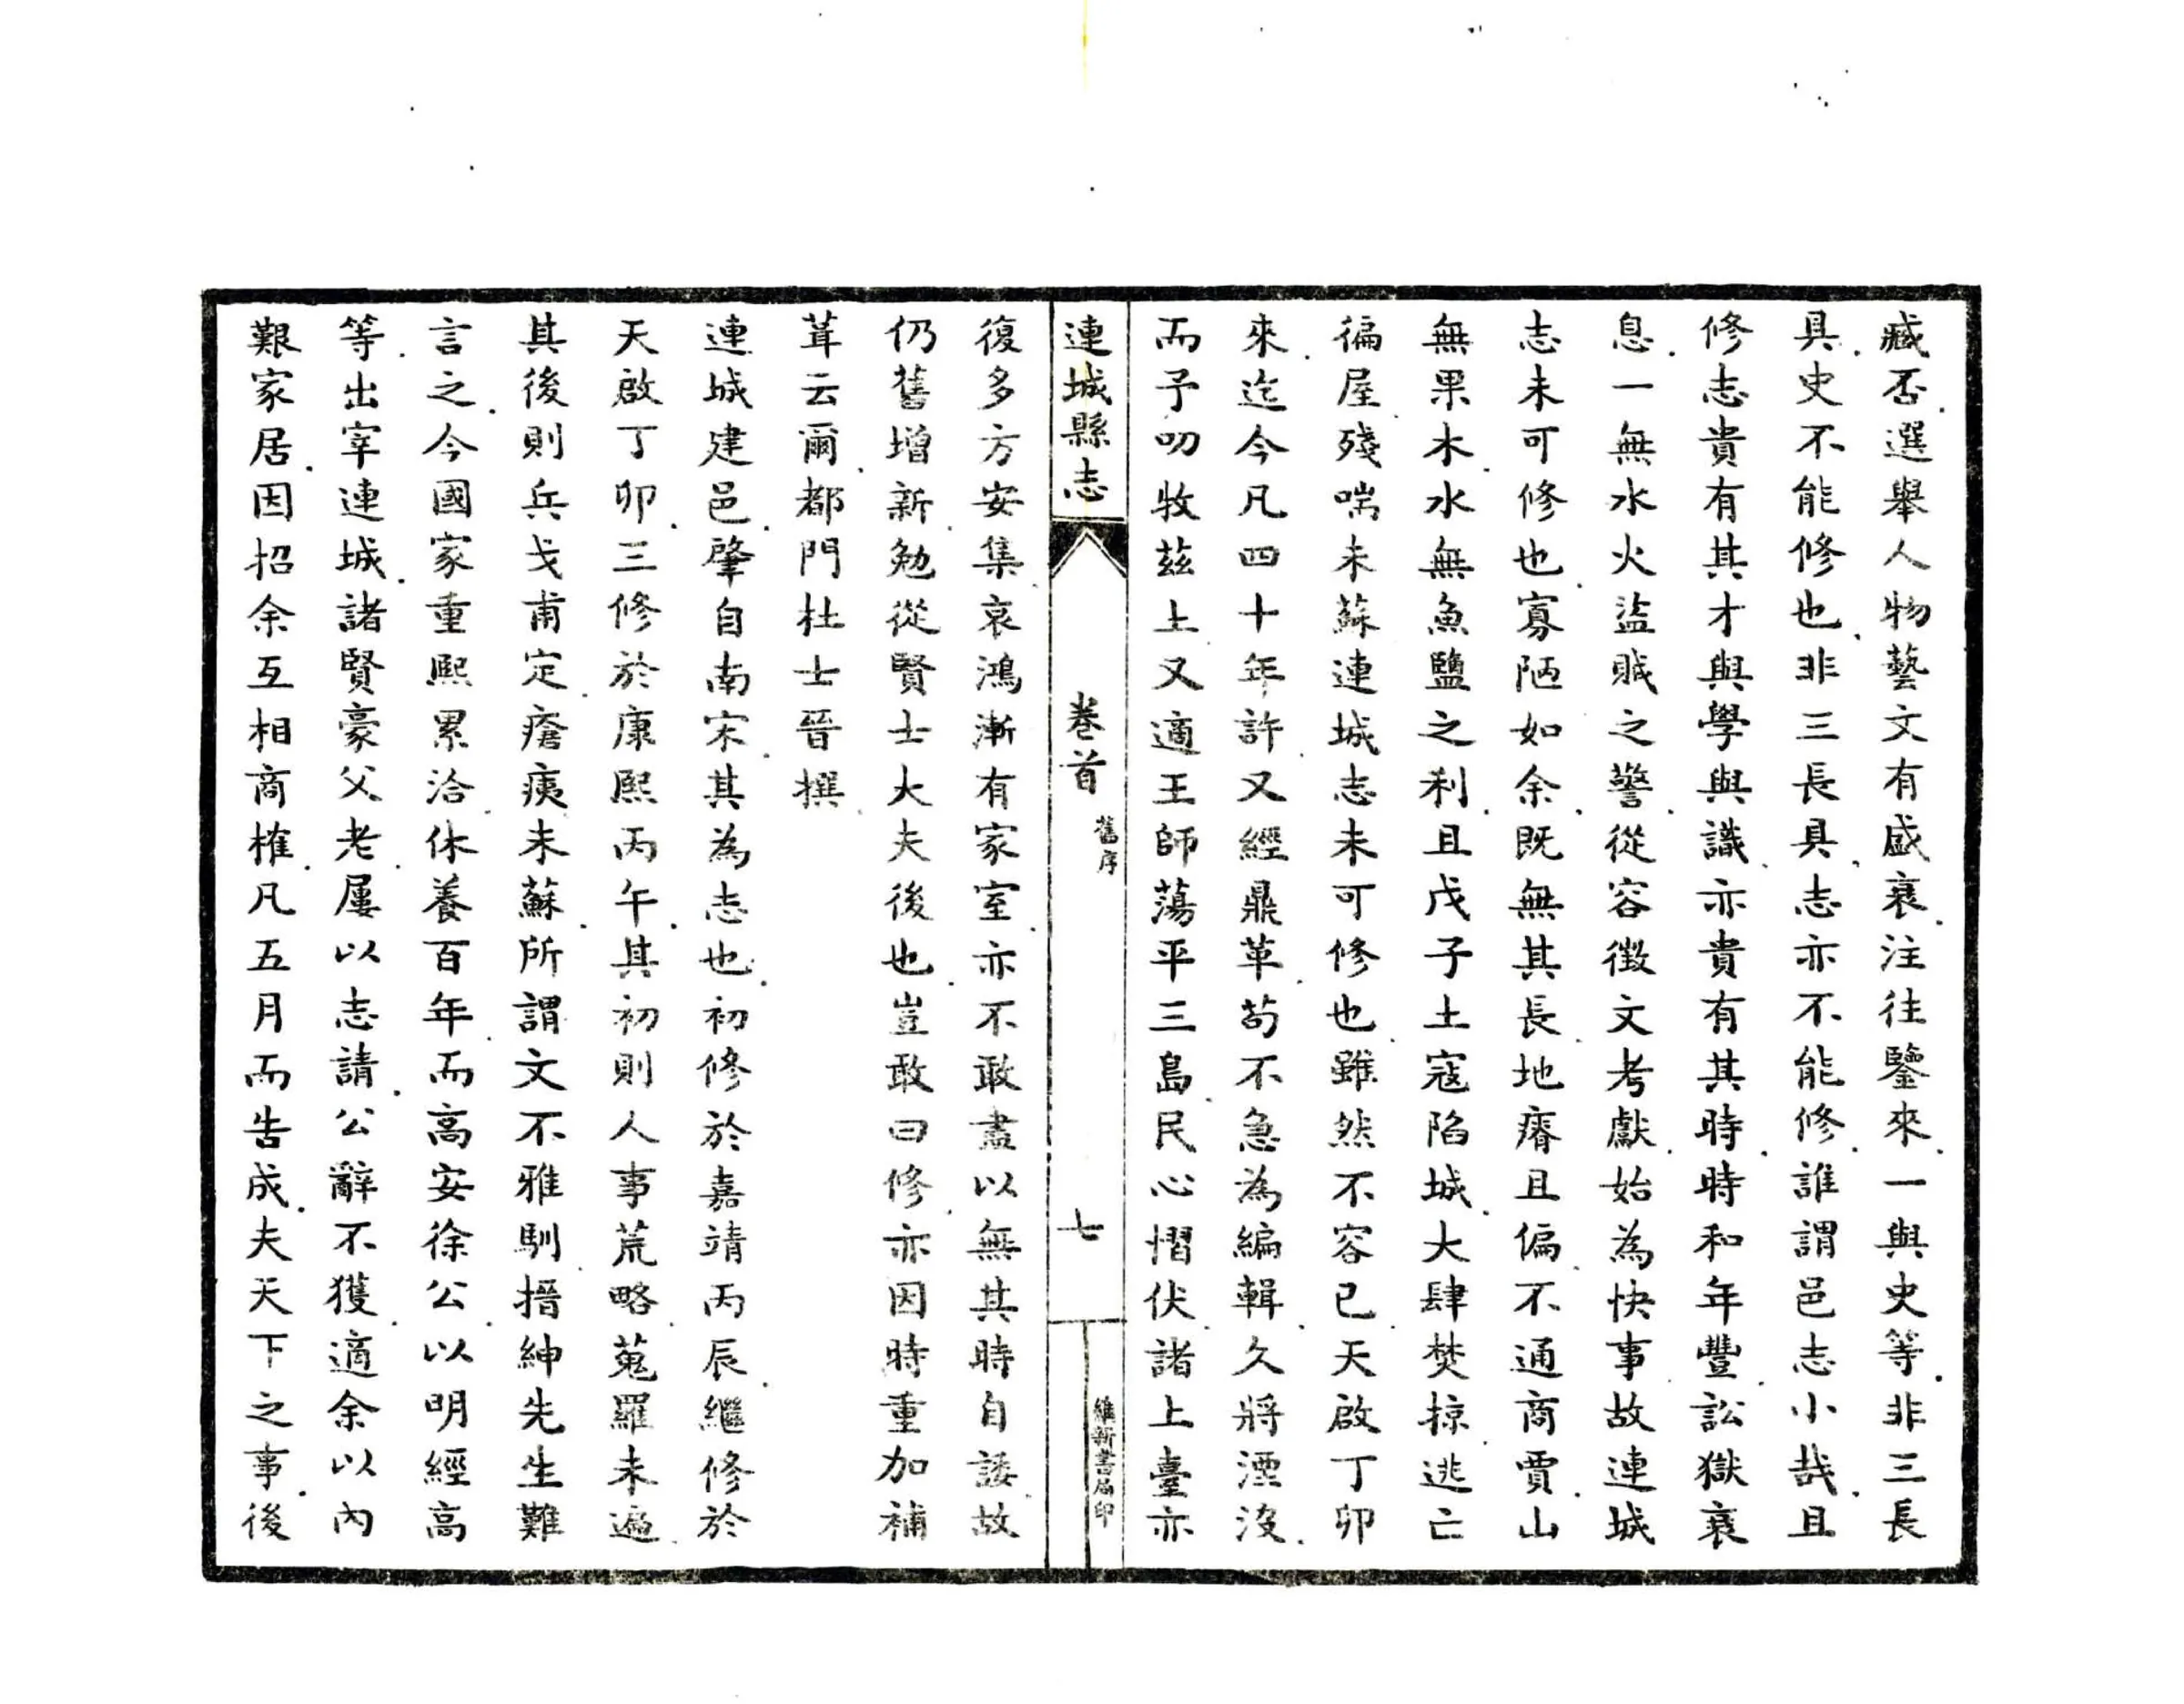 臧否選舉人物藝文有盛衰注往鑒來一與史等非三長
具史不能修也非三長具志亦不能修誰謂邑志小哉且
修志貴有其才與學與識亦貴有其時時和年豐訟獄衰
息一無水火盜賊之警從容徵文考獻始為快事故連城
志未可修也寡陋如余既無其長地瘠且偏不通商賈山
無果木水無魚鹽之利且戊子土寇陷城大肆焚掠逃亡
徧屋殘喘未蘇連城志未可修也雖然不容已天啟丁卯
來迄今凡四十年許又經鼎革苟不急為編輯久將湮沒
而予叨牧茲土又適王師蕩平三島民心慴伏諸上臺亦
連城縣志 卷首 舊序 七 維新書局印
復多方安集哀鴻漸有家室亦不敢盡以無其時自諉故
仍舊增新勉從賢士大夫後也豈敢曰修亦因時重加補
葺云爾都門杜士晉撰
連城建邑肇自南宋其為志也初修於嘉靖丙辰繼修於
天啟丁卯三修於康熙丙午其初則人事荒略蒐羅未遍
其後則兵戈甫定瘡痍未蘇所謂文不雅馴搢紳先生難
言之今國家重熙累洽休養百年而高安徐公以明經高
等出宰連城諸賢豪父老屢以志請公辭不獲適余以內
艱家居因招余互相商榷凡五月而告成夫天下之事後